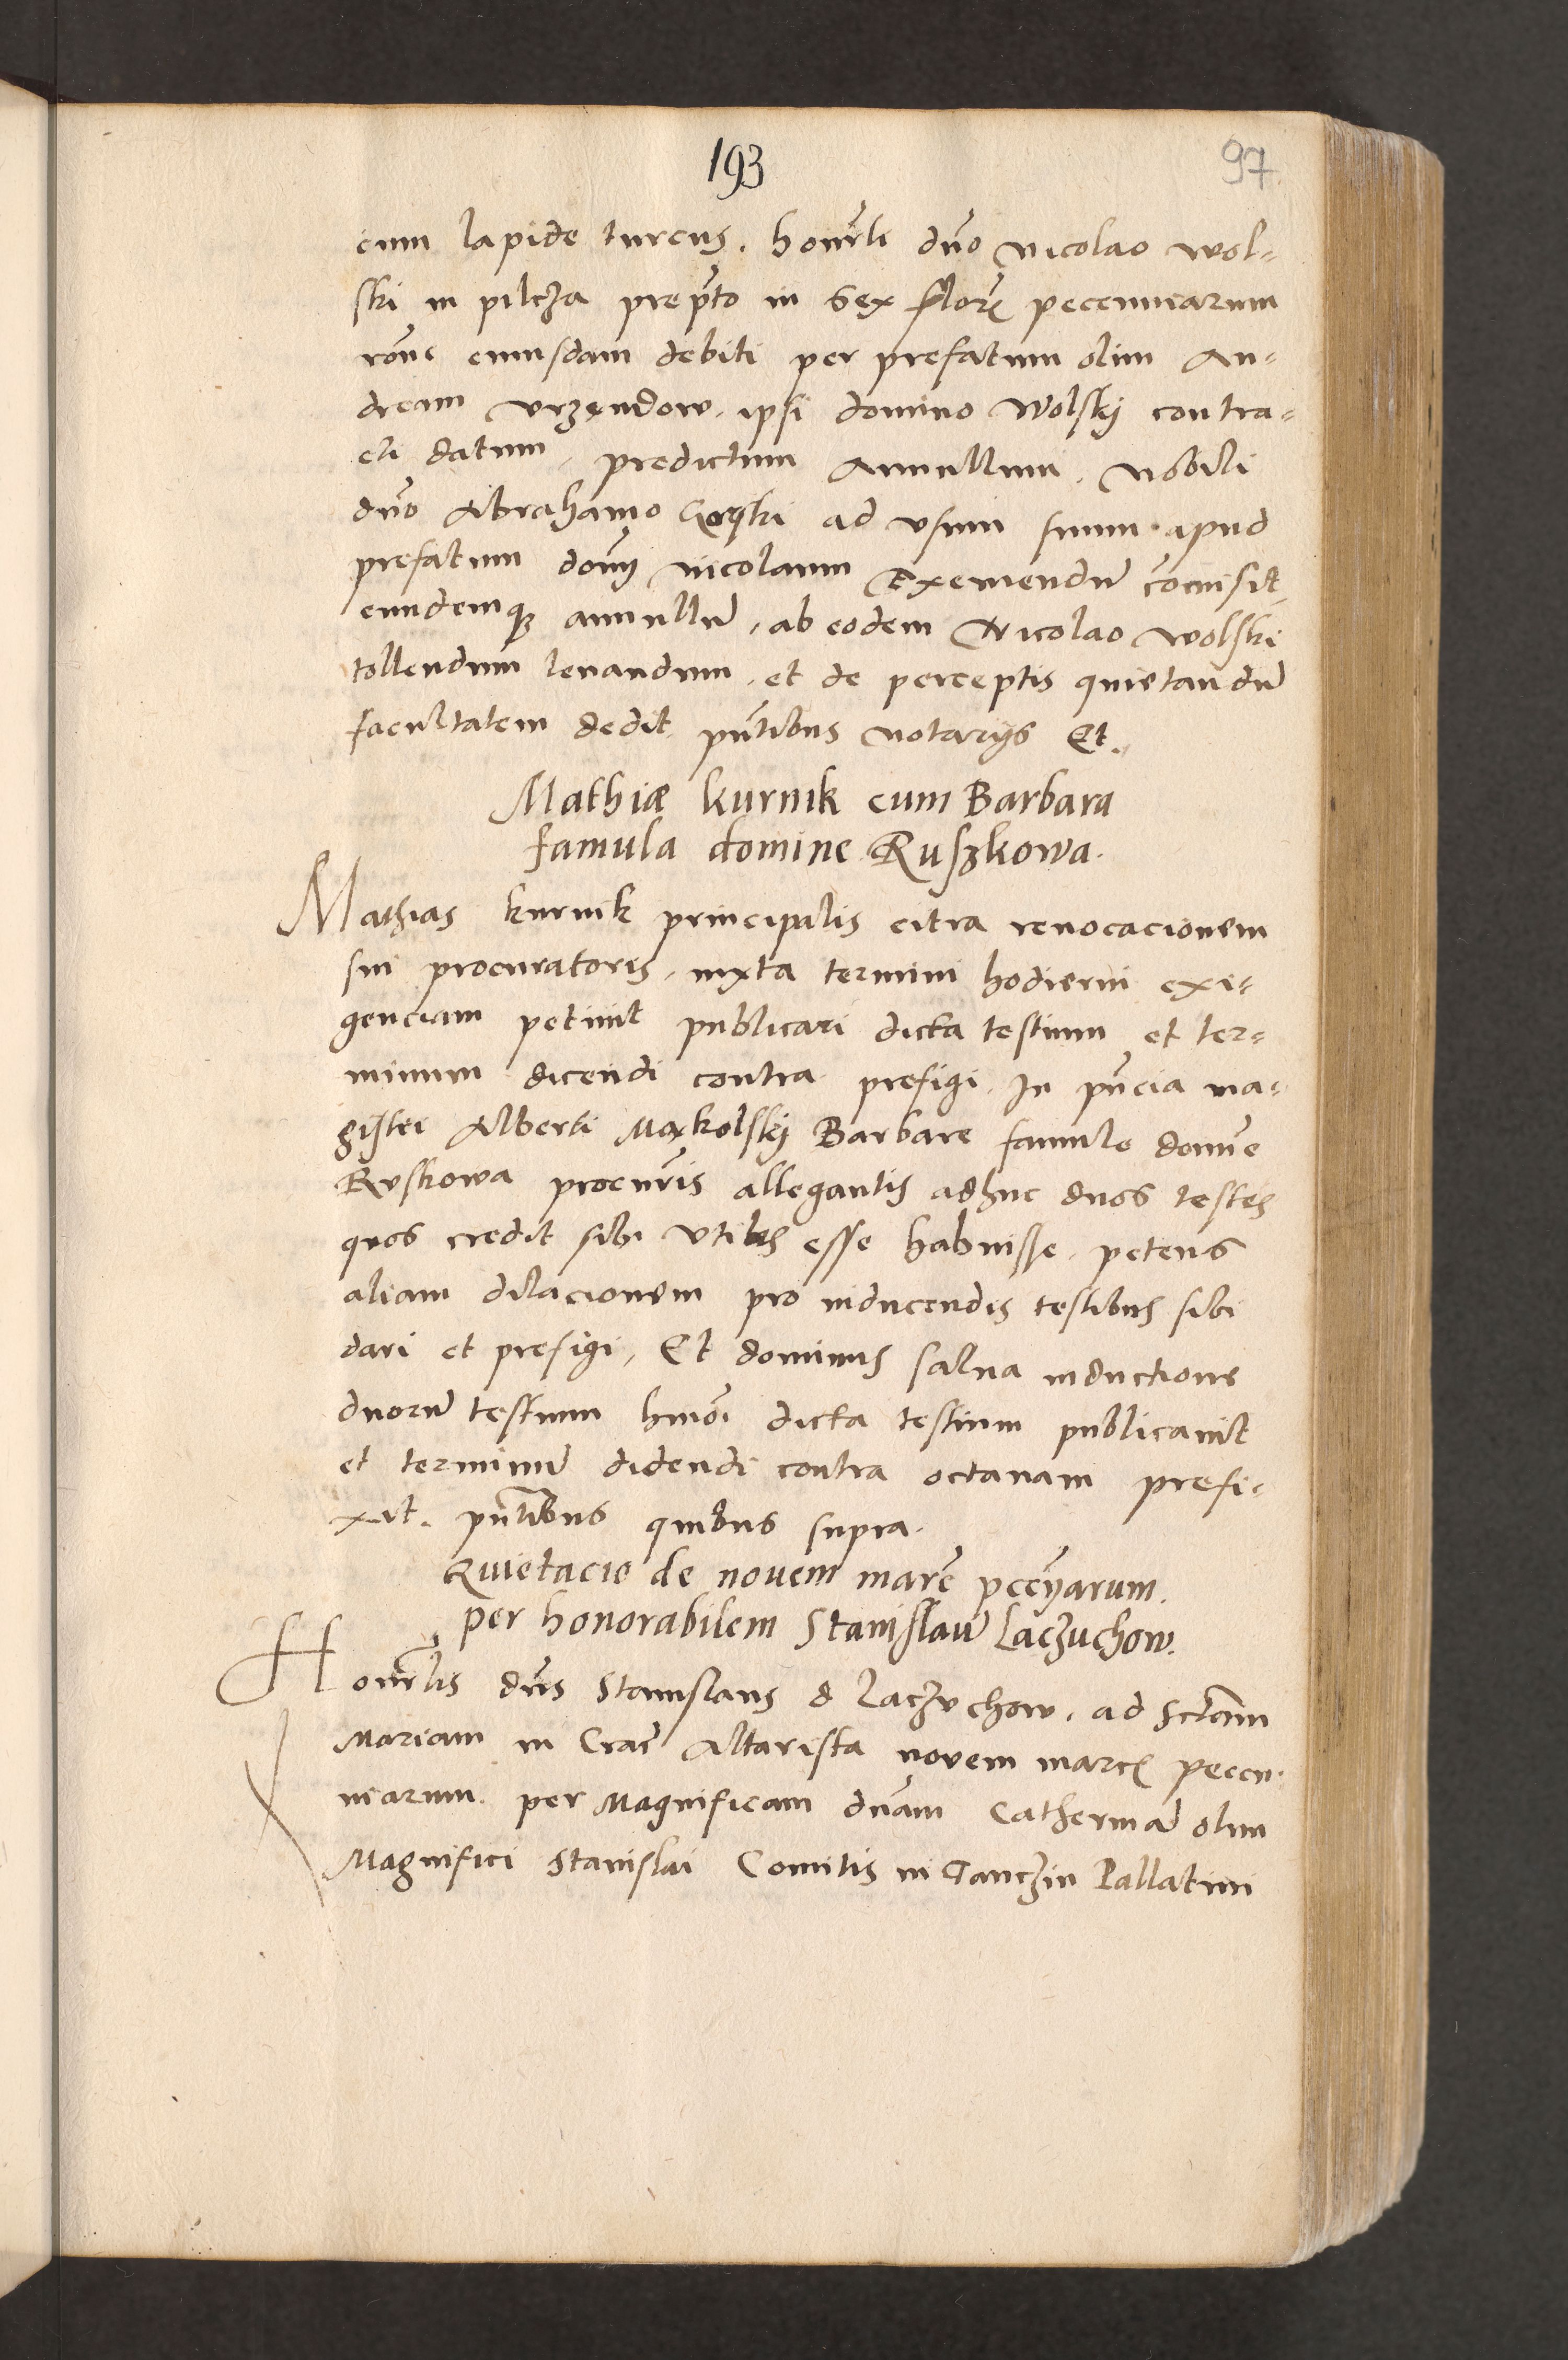 193
97
cum lapide turcus. honrli dno Nicolao Wol=
ski in pilcza prepto in sex floren peccuniarum
rone cuiusdam debiti per prefatum olim An=
dream Vrzendow. ipsi domino Wolskij contra=
cti datum. predictum Annullum. Nobili
dno Abrahamo ad vsum suum. apud
prefatum domij Nicolaum Exemendu comisit,
eundemq annullu, ab eodem Nicolao Wolski
tollendum leuandum. et de perceptis quietandu
facultatem dedit. pntibus notarijs Et.
Mathiæ kurnik cum Barbara
famula domine Ruszkowa.
Mathias kurnik principalis citra reuocacionem
sui procuratoris. iuxta termini hodierni exi=
genciam petiuit publicari dicta testium et ter=
minum dicendi contra prefigi. In pncia ma=
gistri Alberti Mąkolskij Barbare famule domine
Ruskowa procuris allegantis adhuc duos testes
quos credit sibi vtiles esse habuisse. petens
aliam dilacionem pro inducendis testibus sibi
dari et prefigi, Et dominus salua inductione
duoru testium hmoi dicta testium publicauit
et terminu didendi contra octauam prefi=
xit. pntibus quibus supra.
Quietacio de nouem marc peccijarum.
per honorabilem Stanislau Laczuchow.
Honrlis dns Stanislaus d Laczuchow. ad Sctam
Mariam in Crac Altarista novem marc peccu=
niarum. per Magnificam dnam Catherina olim
Magnifici Stanislai Comitis in Tanczin Pallatini